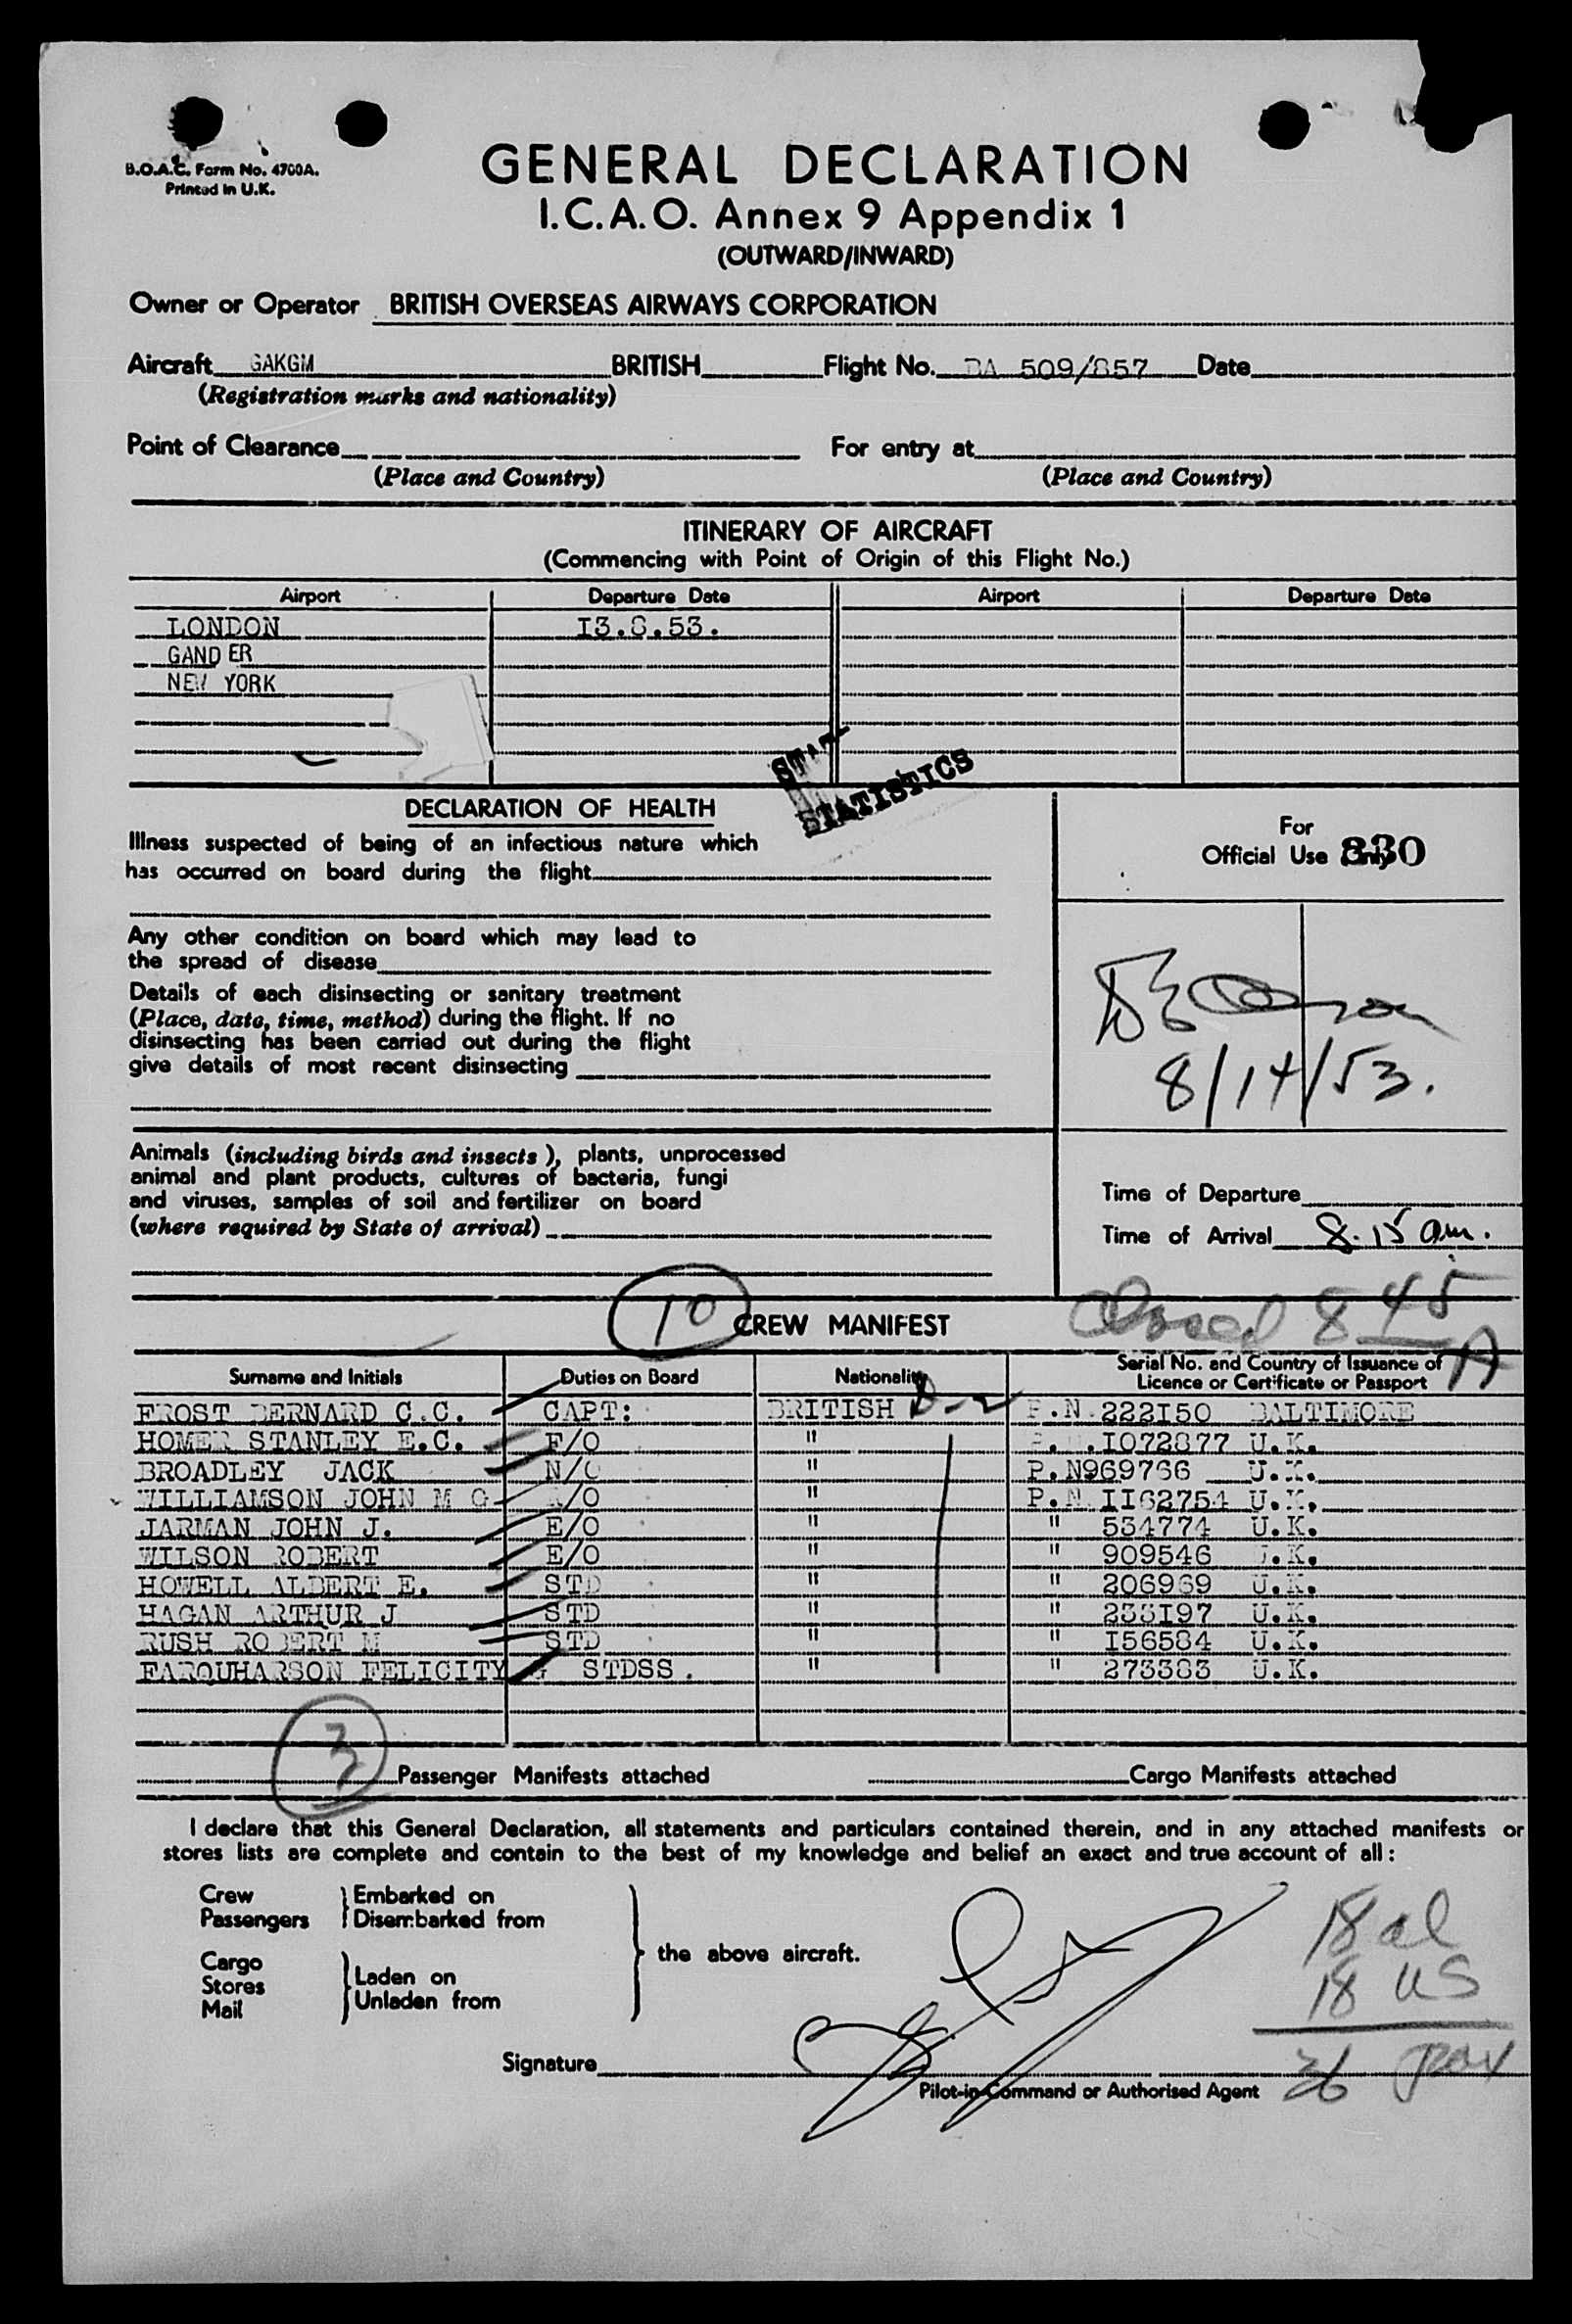 B.O.A.C. Form No. 4700A.
Printed in U.K.
GENERAL DECLARATION
I.C.A.O. Annex 9 Appendix 1
(OUTWARD/INWARD)
Owner or Operator BRITISH OVERSEAS AIRWAYS CORPORATION
Aircraft GAKGM BRITISH Flight No. BA 509/857 Date
(Registration marks and nationality)
Point of Clearance For entry at
(Place and Country) (Place and Country)
ITINERARY OF AIRCRAFT
(Commencing with Point of Origin of this Flight No.)
Airport Departure Date Airport Departure Date
LONDON I3.8.53.
GANDER
NEW YORK
STATISTICS
DECLARATION OF HEALTH
Illness suspected of being of an infectious nature which
has occurred on board during the flight
Any other condition on board which may lead to
the spread of disease
Details of each disinsecting or sanitary treatment
(Place, date, time, method) during the flight. If no
disinsecting has been carried out during the flight
give details of most recent disinsecting
Animals (including birds and insects), plants, unprocessed
animal and plant products, cultures of bacteria, fungi
and viruses, samples of soil and fertilizer on board
(where required by State of arrival)
For
Official Use Only 830
8/14/53.
Time of Departure
Time of Arrival 8.15 am.
Closed 8 45 A
10 CREW MANIFEST
Surname and Initials Duties on Board Nationality Serial No. and Country of Issuance of
Licence or Certificate or Passport
FROST BERNARD C.C. CAPT: BRITISH P.N. 222I50 BALTIMORE
HOMER STANLEY E.C. F/O " P.N.I072877 U.K.
BROADLEY JACK N/O " P.N969766 U.K.
WILLIAMSON JOHN M G R/O " P.N II62754 U.K.
JARMAN JOHN J. E/O " " 534774 U.K.
WILSON ROBERT E/O " " 909546 U.K.
HOWELL ALBERT E. STD " " 206969 U.K.
HAGAN ARTHUR J STD " " 233I97 U.K.
RUSH ROBERT M STD " " I56584 U.K.
FARQUHARSON FELICITY G STDSS. " " 273383 U.K.
3 Passenger Manifests attached Cargo Manifests attached
I declare that this General Declaration, all statements and particulars contained therein, and in any attached manifests or
stores lists are complete and contain to the best of my knowledge and belief an exact and true account of all:
Crew
Passengers
Embarked on
Disembarked from
Cargo
Stores
Mail
Laden on
Unladen from
the above aircraft.
18 al
18 US
36 pax
Signature
Pilot-in-Command or Authorised Agent